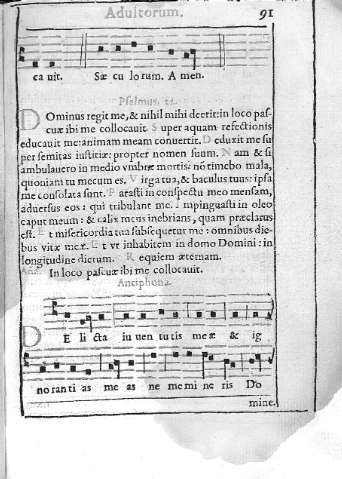 Adultorum. 91
ca uit. Sæ cu lorum. A men.
Psalmus. 22.
Dominus regit me, & nihil mihi deerit: in loco pas-
cuæ ibi me collocauit. Super aquam refectionis
educauit me: animam meam conuertit. Deduxit me su
per semitas iustitiæ: propter nomen suum. Nam & si
ambulauero in medio vmbræ mortis: nō timebo mala,
quoniam tu mecum es. Virga tua, & baculus tuus: ipsa
me consolata sunt. Parasti in conspectu meo mensam,
aduersus eos: qui tribulant me. Impinguasti in oleo
caput meum: & calix meus inebrians, quam præclarus
est. Et misericordia tua subsequetur me: omnibus die-
bus vitæ meæ. Et vt inhabitem in domo Domini: in
longitudine dierum. Requiem æternam.
Añ. In loco pascuæ ibi me collocauit.
Antiphona.
DE li cta iu uen tu tis meæ & ig
no ran ti as me as ne me mi ne ris Do
mine.